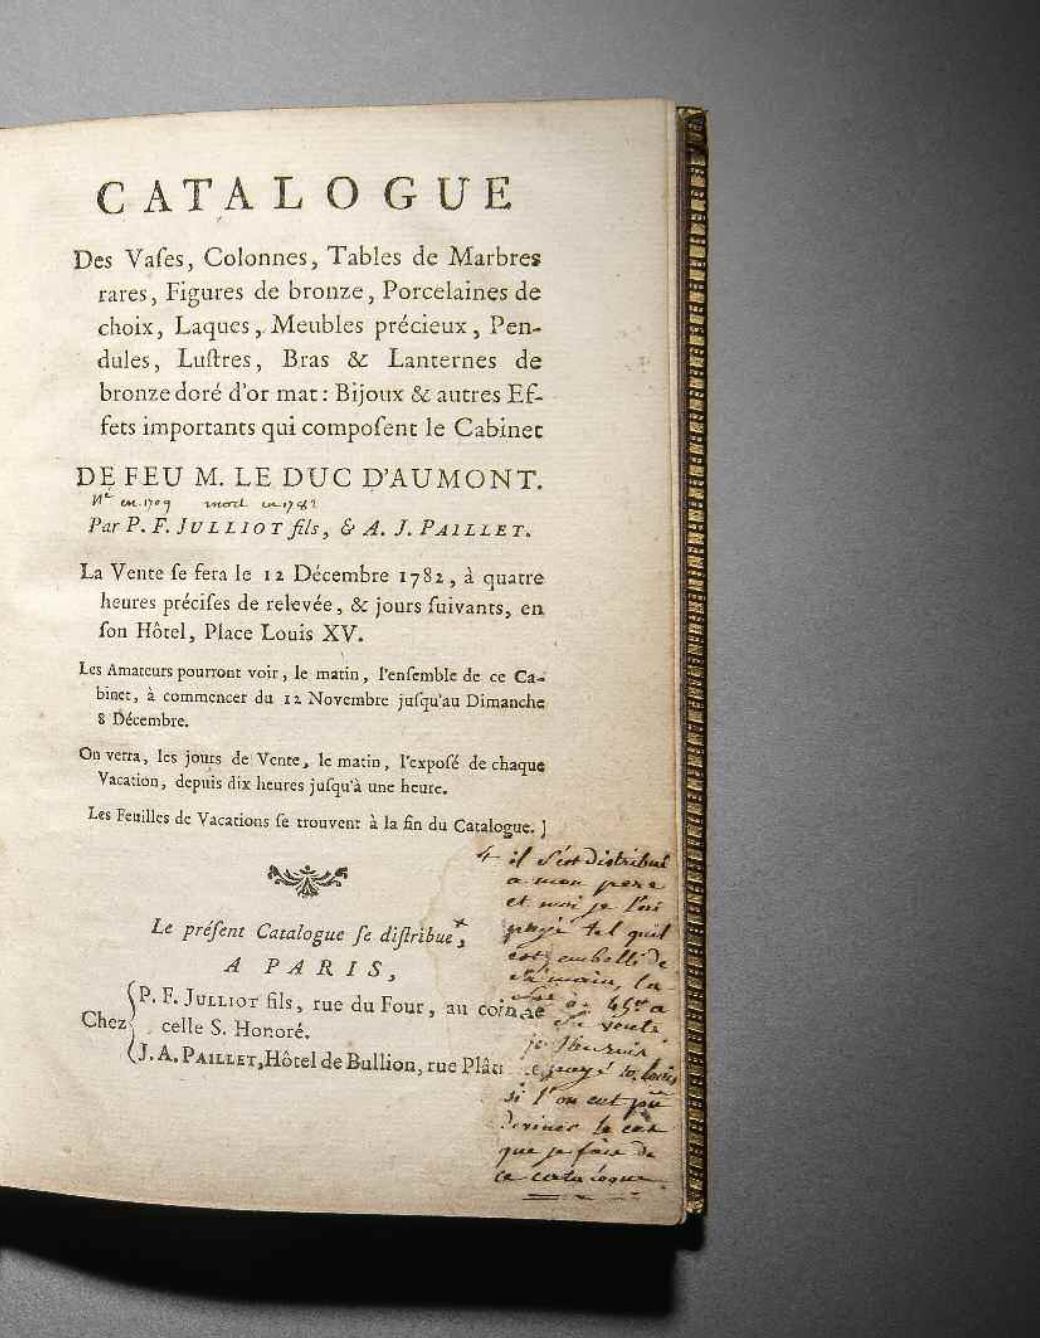 CATALOGUE
Des Vaſes, Colonnes, Tables de Marbres
rares, Figures de bronze, Porcelaines de
choix, Laques, Meubles précieux, Pen-
dules, Luſtres, Bras & Lanternes de
bronze doré d'or mat : Bijoux & autres Ef-
fets importants qui compoſent le Cabinet
DE FEU M. LE DUC D'AUMONT.
Né en 1709 mort en 1782
Par P. F. JULLIOT fils, & A. J. PAILLET.
La Vente ſe fera le 12 Décembre 1782, à quatre
heures préciſes de relevée, & jours ſuivants, en
ſon Hôtel, Place Louis XV.
Les Amateurs pourront voir, le matin, l'enſemble de ce Ca-
binet, à commencer du 12 Novembre juſqu'au Dimanche
8 Décembre.
On verra, les jours de Vente, le matin, l'expoſé de chaque
Vacation, depuis dix heures juſqu'à une heure.
Les Feuilles de Vacations ſe trouvent à la fin du Catalogue. ]
Le préſent Catalogue ſe diſtribue,
A PARIS,
Chez
P. F. JULLIOT fils, rue du Four, au coin de
celle S. Honoré.
J. A. PAILLET, Hôtel de Bullion, rue Plâ
+ il s'est distribué
a mon pere
et moi je l'ai
payé tel quil
est embelli de
sa main, la
a
vente
je
payé 10 louis
si l'on eut pu
deviner le cas
que je fais de
ce catalogue.